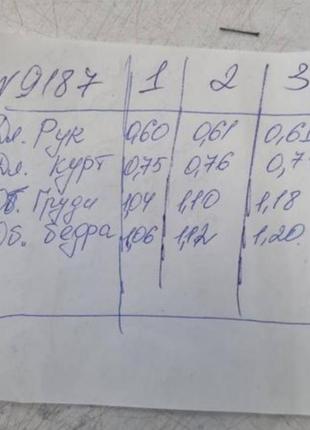 №9187 1 2 3
Дл. Рук 0,60 0,61 0,61
Дл. Курт 0,75 0,76 0,7
Об. Груди 1,04 1,10 1,18
Об. бедра 1,06 1,12 1,20